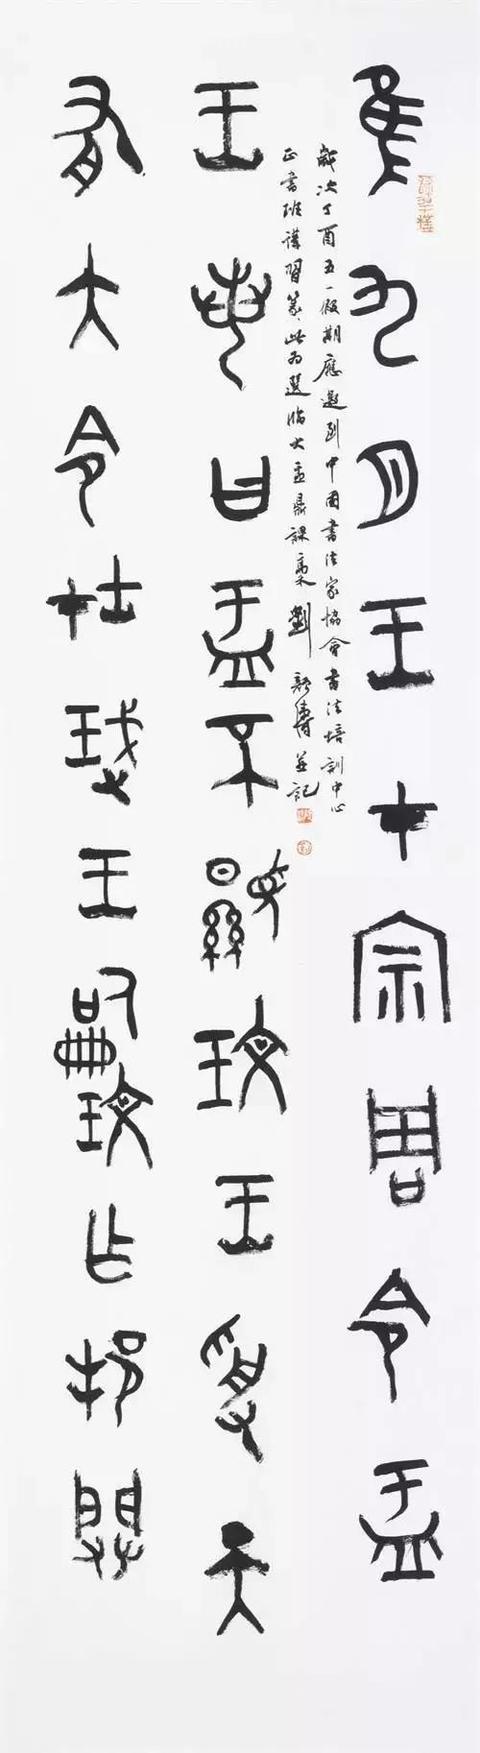 隹九月王才宗周令盂
王若曰盂不顯玟王受天
有大令在珷王嗣玟乍邦闢
歲次丁酉五一假期應邀到中國書法家協會書法培訓中心
正書班講習篆此为選臨大盂鼎課稾劉顏濤並記